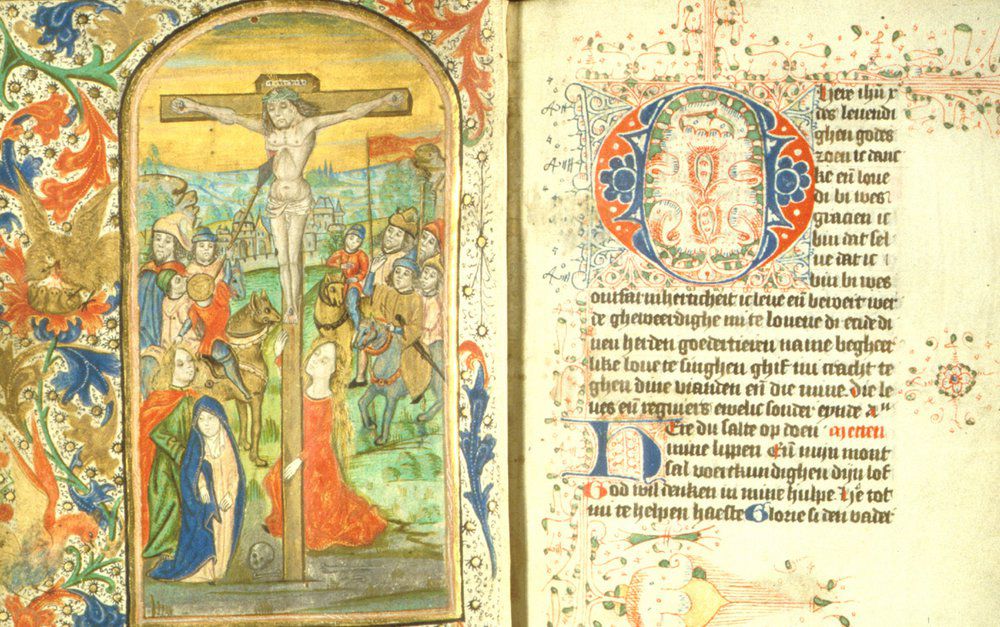 O here ihu x
des leuendi
ghen godes
zoen ic danc
ke eñ loue
di bi wes
gracien ic
bin dat sel
ue dat ic
bin bi wes
ontfarmherticheit ic leue eñ
de gheweerdighe mi te louene di ende di
uen goedertieren name begheer
like loue te singhen ghif mi cracht te
ghen dine vianden eñ die mine. Die le
ues eñ regniers ewelic sonder eynde
HEre du salte op doen Metten
mine lippen Eñ mijn mont
sal voertkundighen dijn lof
God wil denken in mine hulpe tot
mi te helpen haeste Glorie si den vader